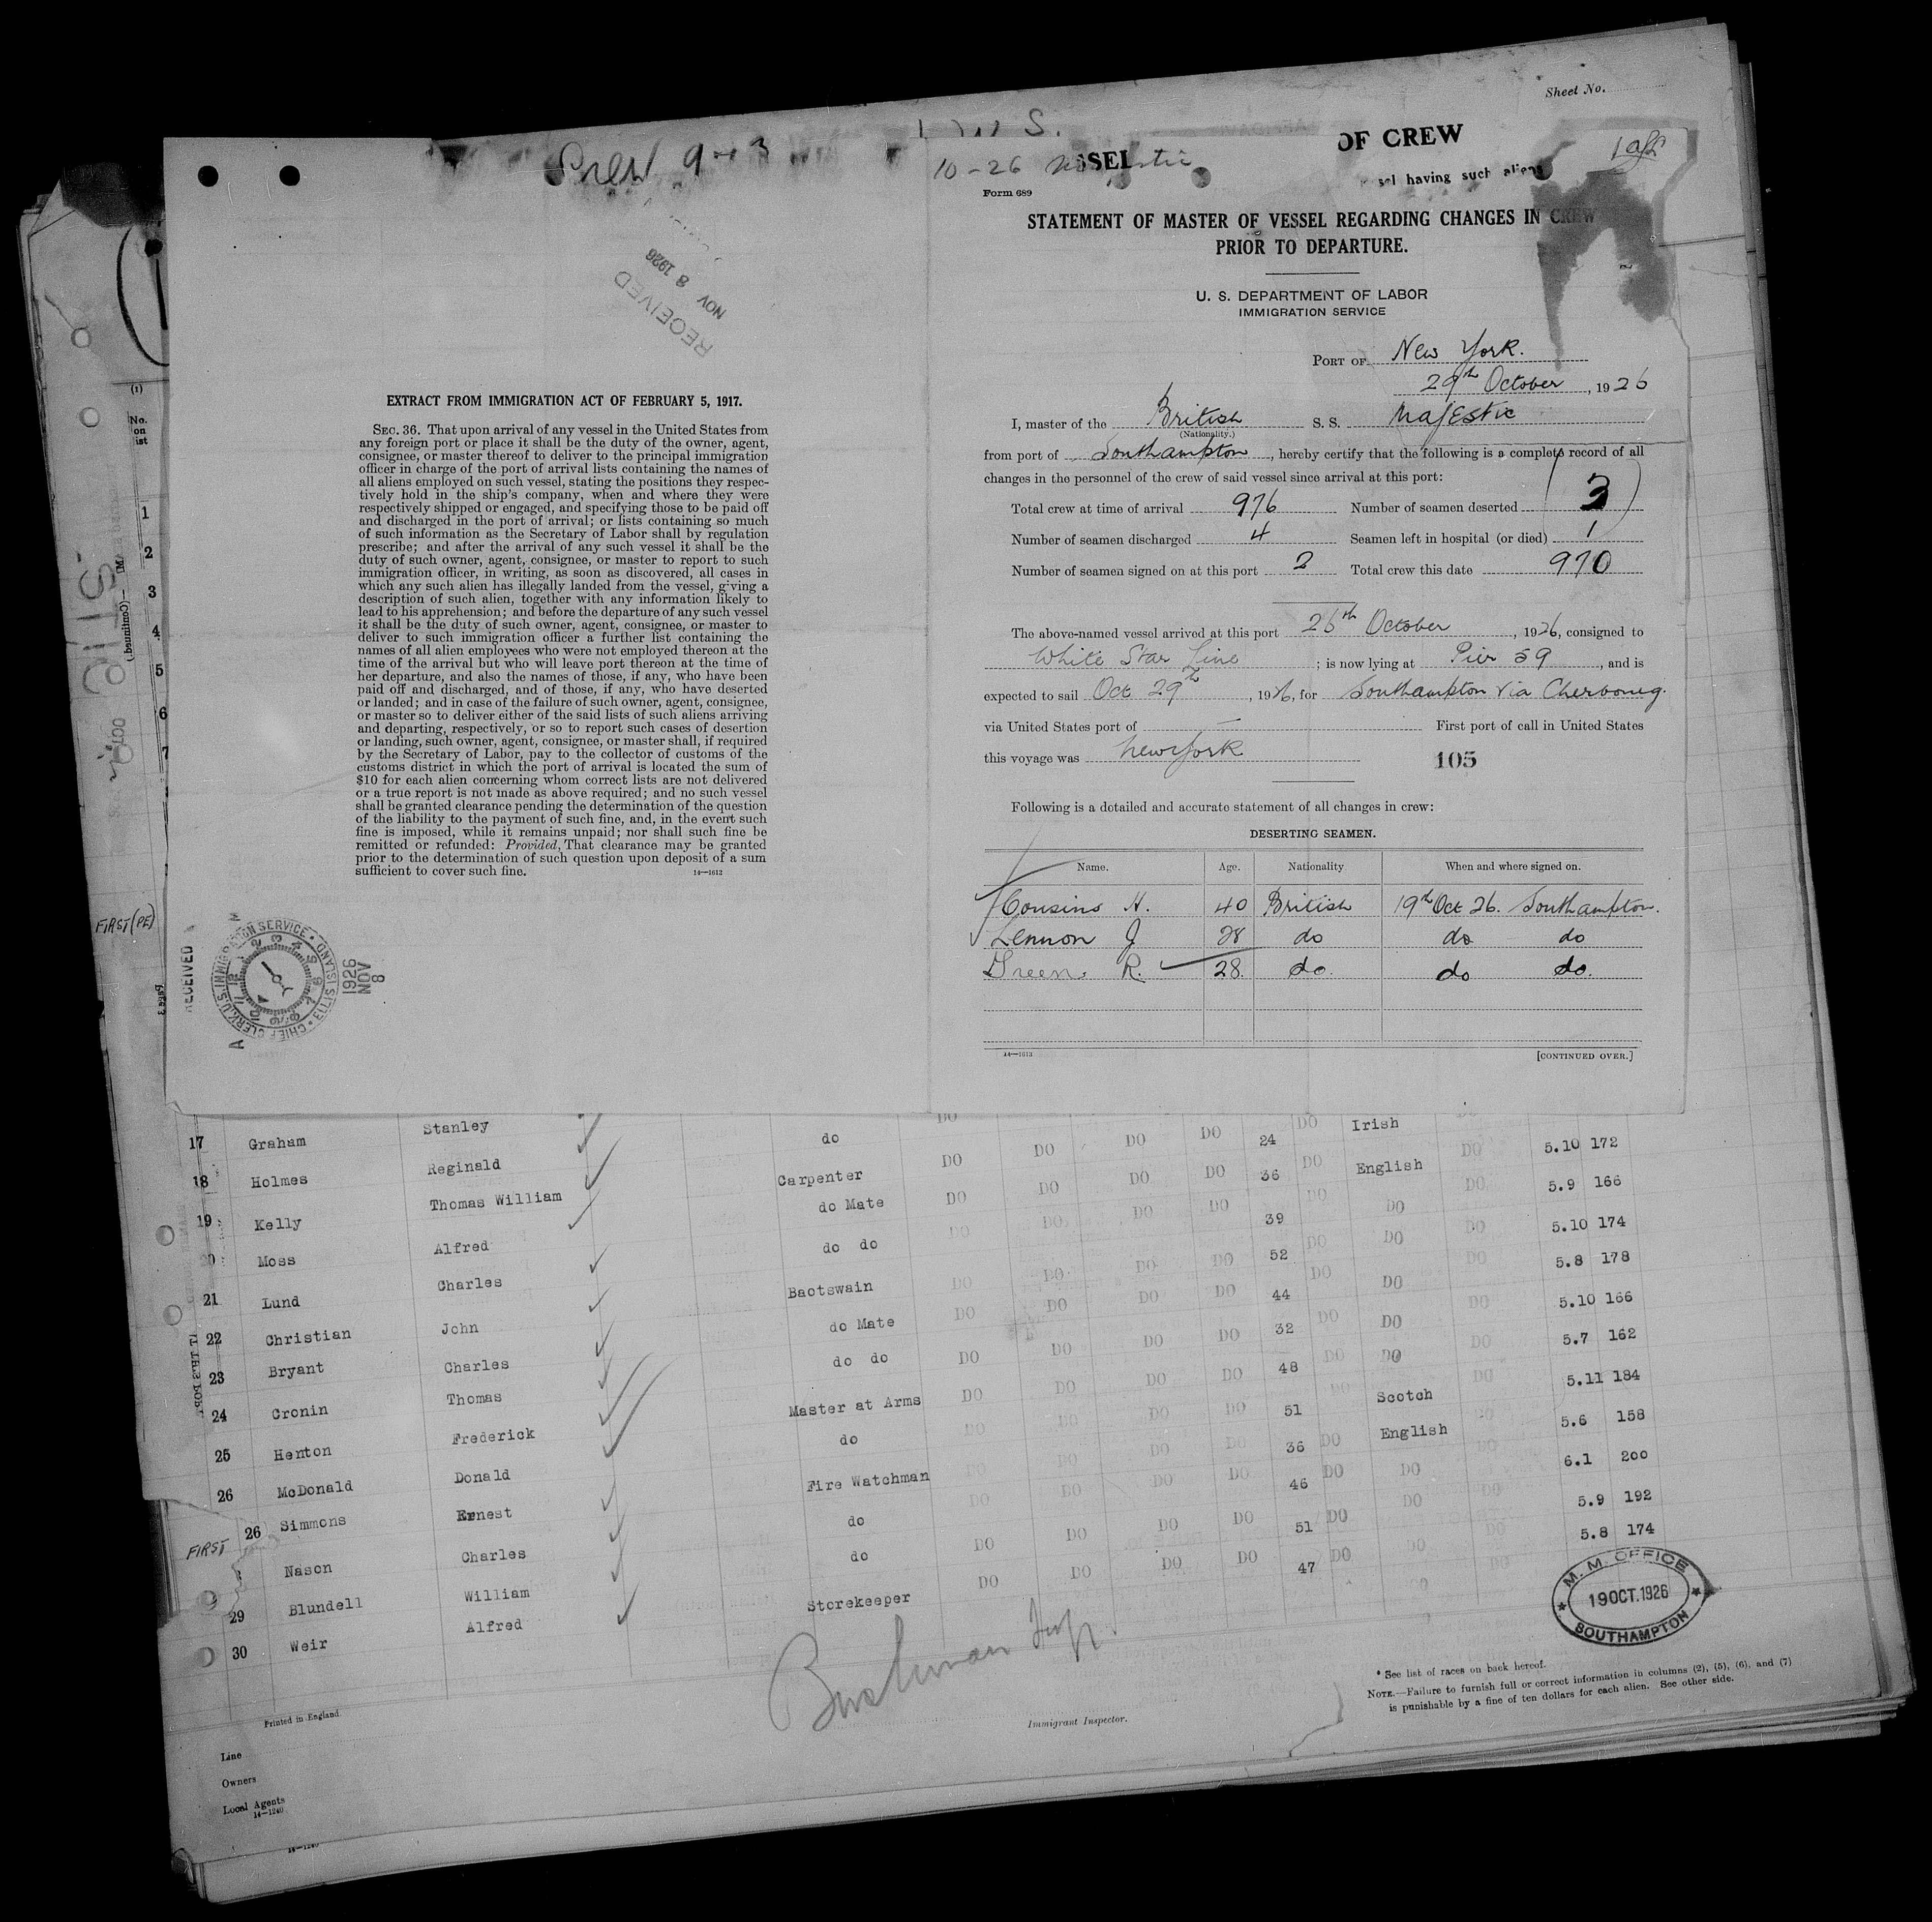 Sheet No.
OF CREW
10-26
SSEL
sel having such aliens
Form 689
STATEMENT OF MASTER OF VESSEL REGARDING CHANGES IN CREW
PRIOR TO DEPARTURE.
U. S. DEPARTMENT OF LABOR
IMMIGRATION SERVICE
PORT OF New York.
29th October, 1926
I, master of the British S. S. Majestic
(Nationality.)
from port of Southampton, hereby certify that the following is a complete record of all
changes in the personnel of the crew of said vessel since arrival at this port:
Total crew at time of arrival 976 Number of seamen deserted 3
Number of seamen discharged 4 Seamen left in hospital (or died) 1
Number of seamen signed on at this port 2 Total crew this date 970
The above-named vessel arrived at this port 26th October, 1926, consigned to
White Star Line; is now lying at Pier 59, and is
expected to sail Oct 29th, 1926, for Southampton via Cherbourg.
via United States port of — First port of call in United States
this voyage was New York
105
Following is a detailed and accurate statement of all changes in crew:
DESERTING SEAMEN.
Name. Age. Nationality When and where signed on.
Cousins H. 40 British 19th Oct 26. Southampton.
Lennon J 28 do do do
Green R. 28 do. do do.
14—1613
[CONTINUED OVER.]
RECEIVED
NOV 8 1926
EXTRACT FROM IMMIGRATION ACT OF FEBRUARY 5, 1917.
SEC. 36. That upon arrival of any vessel in the United States from
any foreign port or place it shall be the duty of the owner, agent,
consignee, or master thereof to deliver to the principal immigration
officer in charge of the port of arrival lists containing the names of
all aliens employed on such vessel, stating the positions they respec-
tively hold in the ship's company, when and where they were
respectively shipped or engaged, and specifying those to be paid off
and discharged in the port of arrival; or lists containing so much
of such information as the Secretary of Labor shall by regulation
prescribe; and after the arrival of any such vessel it shall be the
duty of such owner, agent, consignee, or master to report to such
immigration officer, in writing, as soon as discovered, all cases in
which any such alien has illegally landed from the vessel, giving a
description of such alien, together with any information likely to
lead to his apprehension; and before the departure of any such vessel
it shall be the duty of such owner, agent, consignee, or master to
deliver to such immigration officer a further list containing the
names of all alien employees who were not employed thereon at the
time of the arrival but who will leave port thereon at the time of
her departure, and also the names of those, if any, who have been
paid off and discharged, and of those, if any, who have deserted
or landed; and in case of the failure of such owner, agent, consignee,
or master so to deliver either of the said lists of such aliens arriving
and departing, respectively, or so to report such cases of desertion
or landing, such owner, agent, consignee, or master shall, if required
by the Secretary of Labor, pay to the collector of customs of the
customs district in which the port of arrival is located the sum of
$10 for each alien concerning whom correct lists are not delivered
or a true report is not made as above required; and no such vessel
shall be granted clearance pending the determination of the question
of the liability to the payment of such fine, and, in the event such
fine is imposed, while it remains unpaid; nor shall such fine be
remitted or refunded: Provided, That clearance may be granted
prior to the determination of such question upon deposit of a sum
sufficient to cover such fine.
14—1612
RECEIVED
CHIEF CLERK, U.S. IMMIGRATION SERVICE • ELLIS ISLAND
1926
NOV
8
(1)
No.
on
ist
1
2
3
4
5
6
7
(Continued.)
FIRST (PE)
17 Graham Stanley do DO DO DO DO 24 DO Irish DO 5.10 172
18 Holmes Reginald Carpenter DO DO DO DO 36 DO English DO 5.9 166
19 Kelly Thomas William do Mate DO DO DO DO 39 DO DO DO 5.10 174
20 Moss Alfred do do DO DO DO DO 52 DO DO DO 5.8 178
21 Lund Charles Baotswain DO DO DO DO 44 DO DO DO 5.10 166
22 Christian John do Mate DO DO DO DO 32 DO DO DO 5.7 162
23 Bryant Charles do do DO DO DO DO 48 DO DO DO 5.11 184
24 Cronin Thomas Master at Arms DO DO DO DO 51 DO Scotch DO 5.6 158
25 Henton Frederick do DO DO DO DO 36 DO English DO 6.1 200
26 McDonald Donald Fire Watchman DO DO DO DO 46 DO DO DO 5.9 192
FIRST 26 Simmons Ernest do DO DO DO DO 51 DO DO DO 5.8 174
Nason Charles do DO DO DO DO 47 DO
29 Blundell William Storekeeper
30 Weir Alfred
M. M. OFFICE
19 OCT. 1926
SOUTHAMPTON
Immigrant Inspector.
* See list of races on back hereof.
NOTE.—Failure to furnish full or correct information in columns (2), (5), (6), and (7)
is punishable by a fine of ten dollars for each alien. See other side.
Printed in England
Line
Owners
Local Agents
14—1240
14—1240